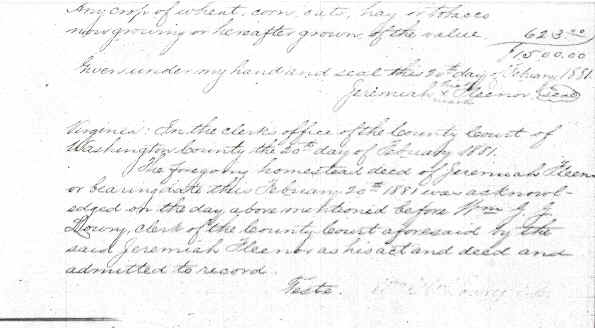 Any crop of wheat, corn, oats, hay or tobacco
now growing or hereafter grown, of the value, 623.00
$1500.00
Given under my hand and seal this 20th day of February 1881.
his
Jeremiah x Fleenor Seal
mark
Virginia: In the clerk's office of the County Court of
Washington County the 20th day of February 1881.
The foregoing homestead deed of Jeremiah Fleen-
or bearing date this February 20th 1881 was acknowl-
edged on the day above mentioned before Wm G. G.
Lowry, clerk of the County Court aforesaid by the
said Jeremiah Fleenor as his act and deed and
admitted to record.
Teste.